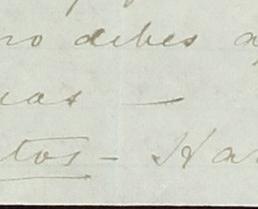 no debes a
uas —
tos – Ha